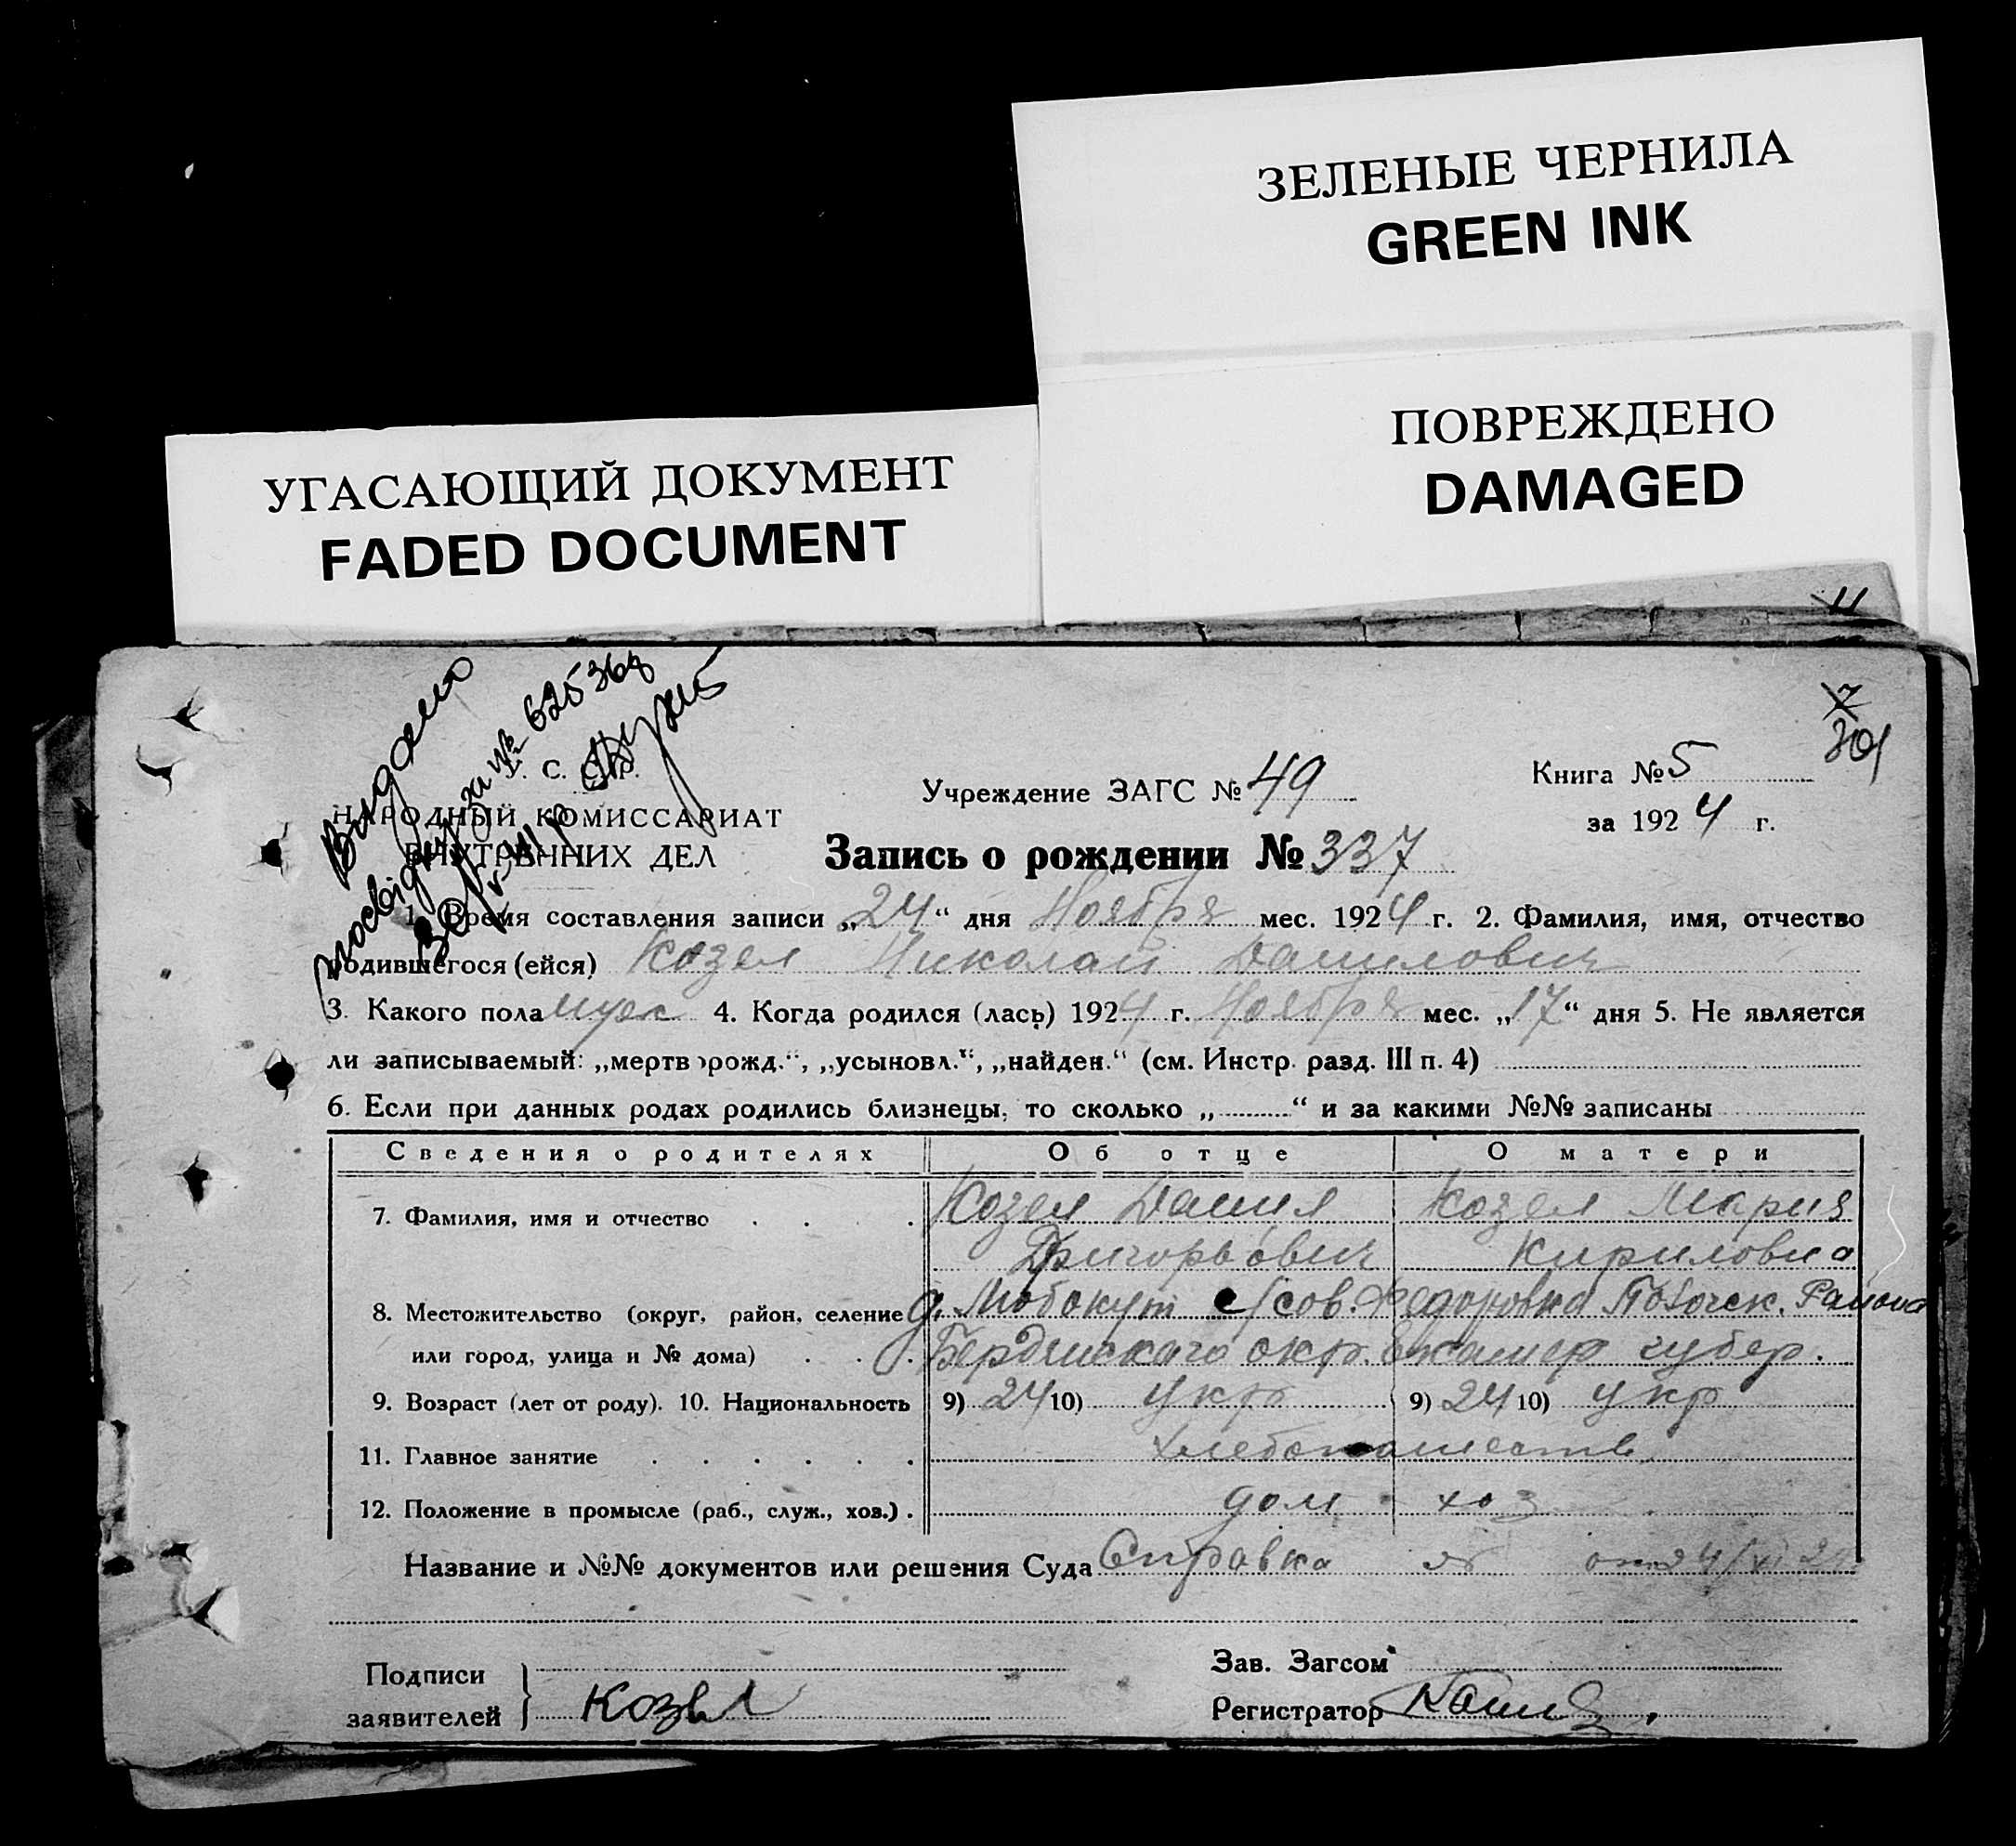 ЗЕЛЕНЫЕ ЧЕРНИЛА
GREEN INK
ПОВРЕЖДЕНО
DAMAGED
УГАСАЮЩИЙ ДОКУМЕНТ
FADED DOCUMENT
11
7
301
Видано
посвідку за № 625368
У. С. С. Р.
НАРОДНЫЙ КОМИССАРИАТ
ВНУТРЕННИХ ДЕЛ
Учреждение ЗАГС № 49
Книга № 5
за 1924 г.
Запись о рождении № 337
1. Время составления записи „24“ дня Ноября мес. 1924 г. 2. Фамилия, имя, отчество
родившегося (ейся) Козел Николай Данилович
3. Какого пола муж 4. Когда родился (лась) 1924 г. Ноября мес. „17“ дня 5. Не является
ли записываемый: „мертворожд.“, „усыновл.“, „найден.“ (см. Инстр. разд. III п. 4)
6. Если при данных родах родились близнецы, то сколько „ “ и за какими №№ записаны
Сведения о родителях Об отце О матери
7. Фамилия, имя и отчество Козел Данил Козел Мария
Григорьович Кириловна
8. Местожительство (округ, район, селение д. Любокут с/сов. Федоровка Района
или город, улица и № дома) окр. Екатер губер.
9. Возраст (лет от роду). 10. Национальность 9) 24 10) Укр 9) 24 10) Укр
11. Главное занятие
12. Положение в промысле (раб., служ., хоз.) дом. хоз
Название и №№ документов или решения Суда Справка от 24/XI 24
Подписи
заявителей Козел
Зав. Загсом
Регистратор